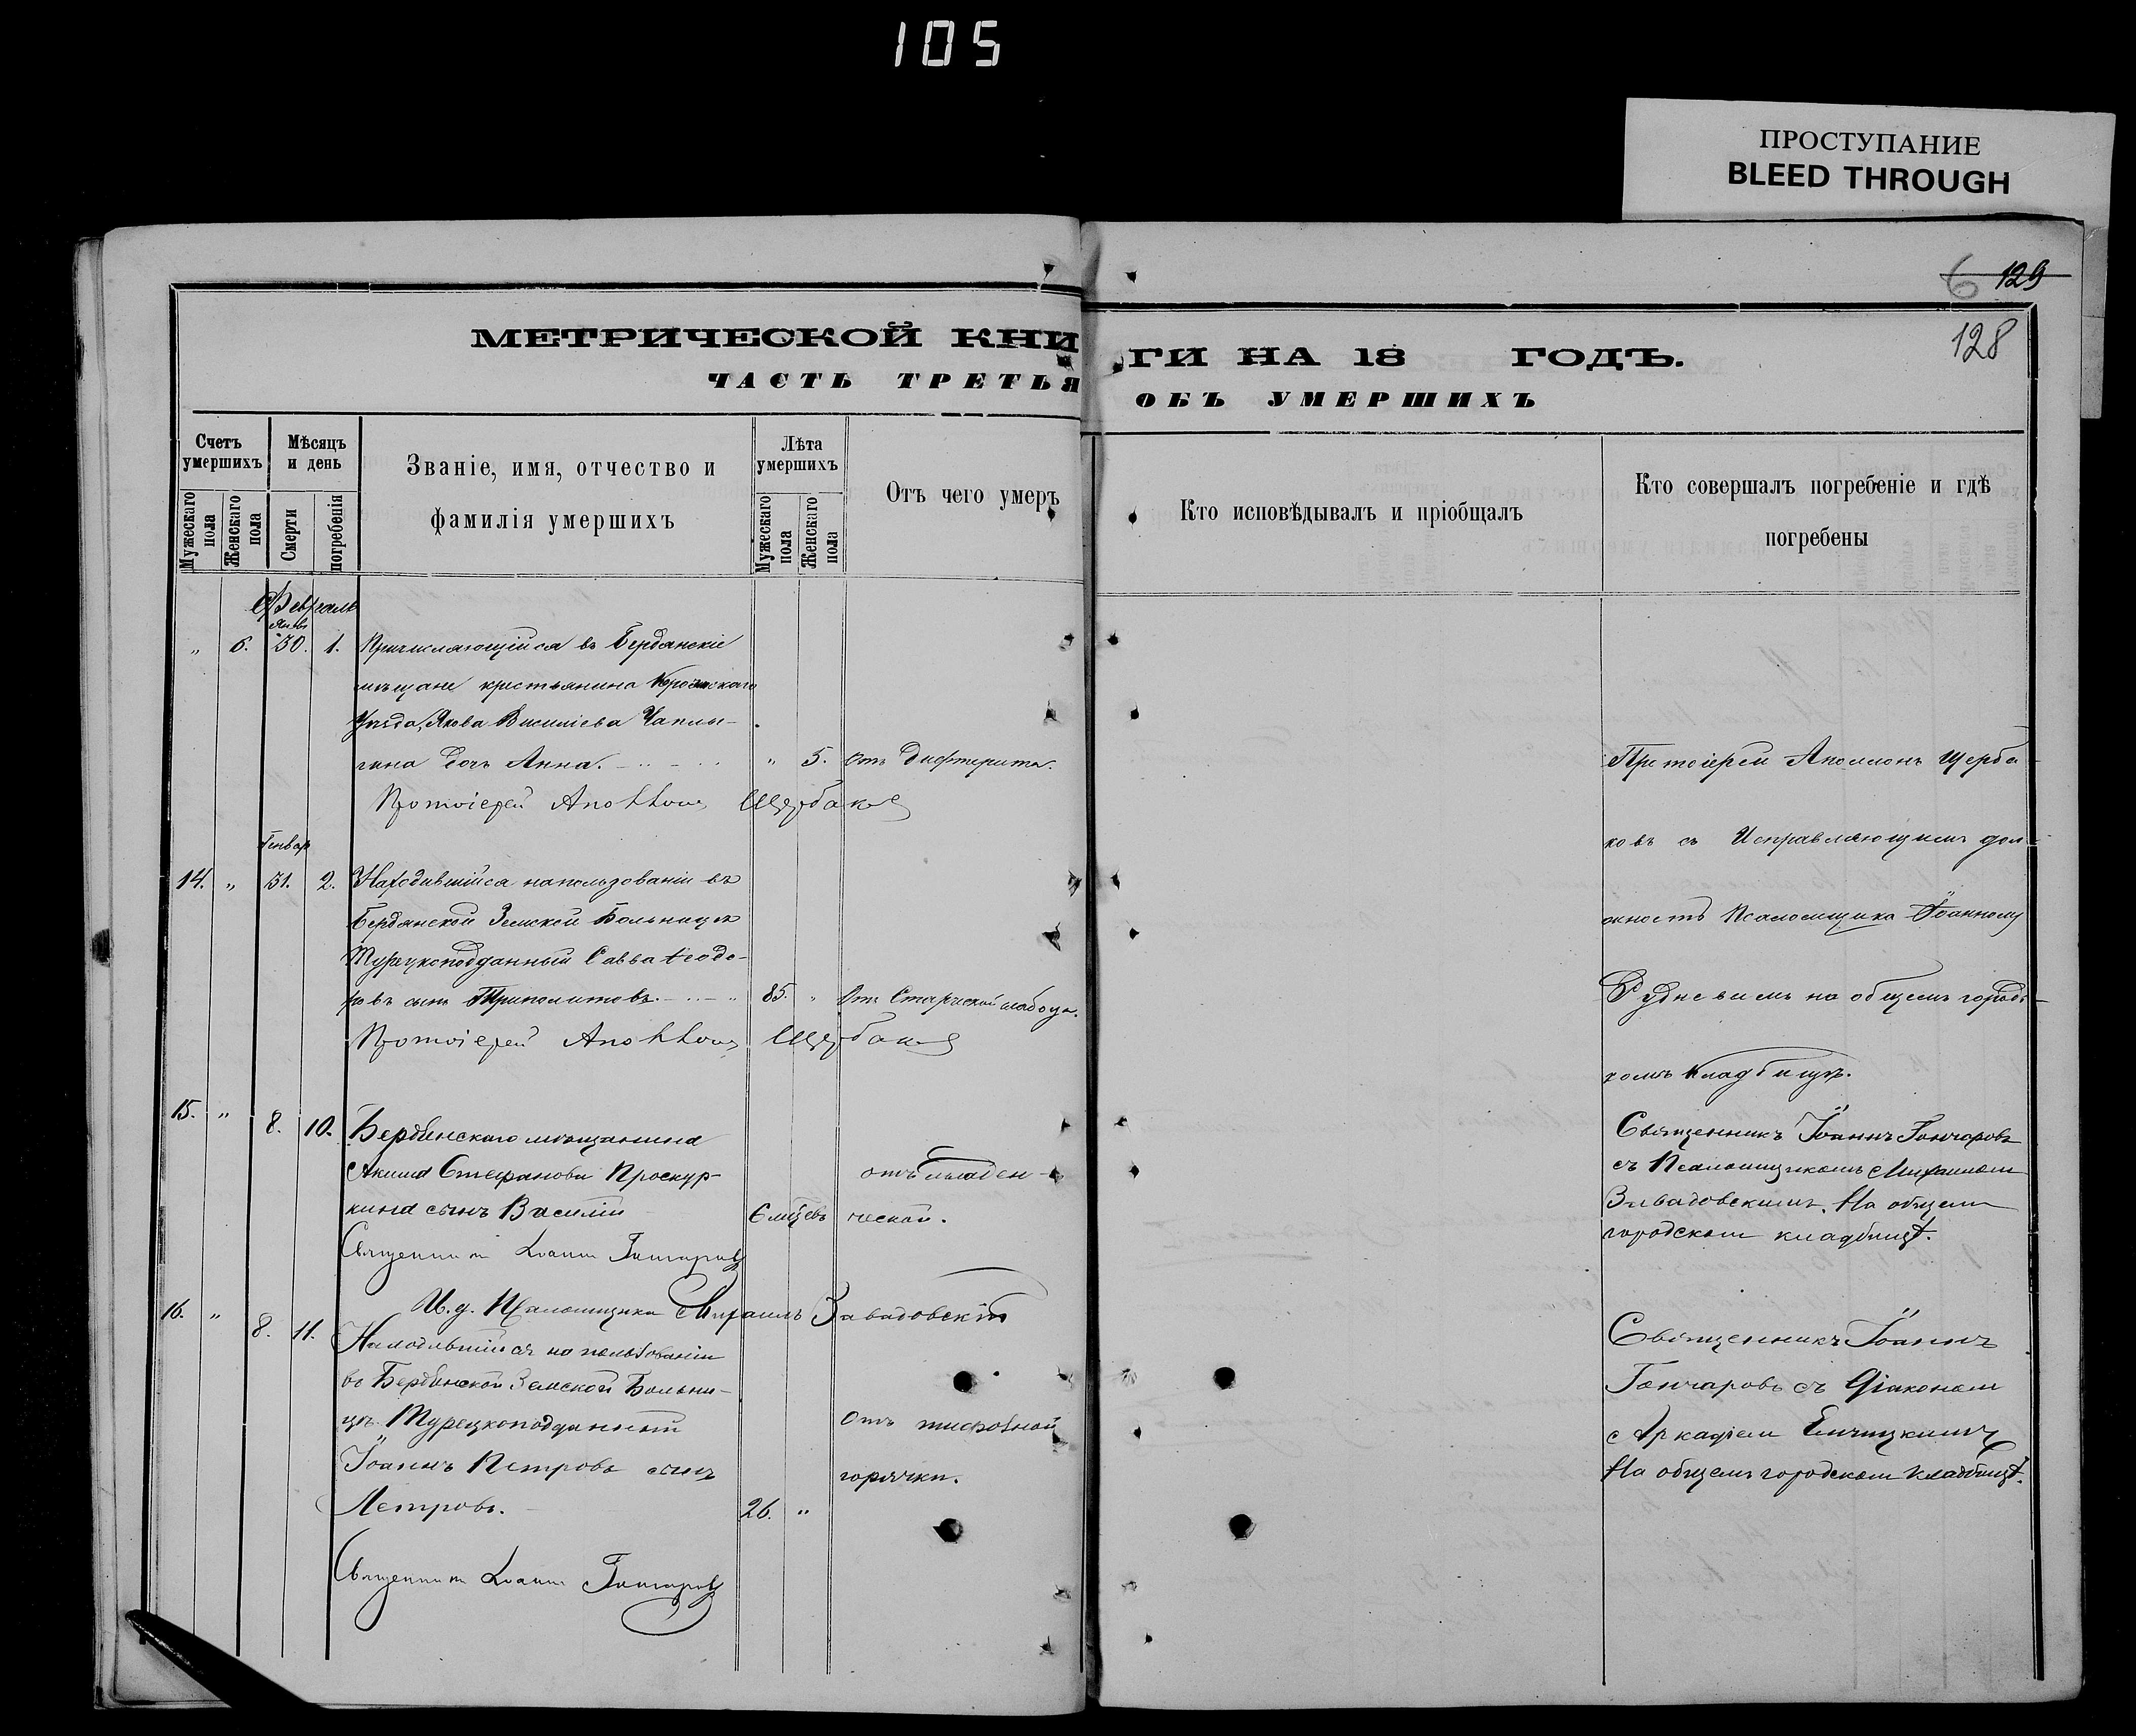 105
ПРОСТУПАНИЕ
BLEED THROUGH
6 129
128
МЕТРИЧЕСКОЙ КНИГИ НА 18 ГОДЪ.
ЧАСТЬ ТРЕТЬЯ ОБЪ УМЕРШИХЪ
Счетъ умершихъ
Мужескаго пола
Женскаго пола
Мѣсяцъ и день
Смерти
погребенія
Званіе, имя, отчество и
фамилія умершихъ
Лѣта умершихъ
Мужескаго пола
Женскаго пола
Отъ чего умеръ
Кто исповѣдывалъ и пріобщалъ
Кто совершалъ погребеніе и гдѣ
погребены
Февраль
Янв
„ 6. 30. 1. Причисляющійся въ Бердянскіе
мѣщане крестьянина
Уѣзда, Якова Василіева Чаплы-
гина дочь Анна. „ 5. отъ Дифтерита.
Протоіерей Аполлонъ Щербаковъ
Генвар
14. „ 31. 2. Находившійся на пользованіи въ
Бердянской Земской Больницѣ
Турецкоподданный Савва Ѳеодо-
ровъ сынъ Триполитовъ. 85. „ Отъ Старческой слабости.
Протоіерей Аполлонъ Щербаковъ
Протоіерей Аполлонъ Щерба-
ковъ съ Исправляющимъ дол-
жность Псаломщика Іоанному
Рудневимъ на общемъ городс-
комъ кладбищѣ.
15. „ 8. 10. Бердянскаго мѣщанина
Акима Стефанова Проскур-
кина сынъ Василій 6 мѣцевъ
отъ младен-
ческой.
Священникъ Іоаннъ Гончаровъ
И. д. Псаломщика Михаилъ Завадовскій
Священникъ Іоаннъ Гончаровъ
съ Псаломщикомъ Михаиломъ
Завадовскимъ. На общемъ
городскомъ кладбищѣ.
16. „ 8. 11. Находившійся на пользованіи
въ Бердянской Земской Больни-
цѣ Турецкоподданный
Іоаннъ Петровъ сынъ
Петровъ. 26. „
Отъ тифозной
горячки.
Священникъ Іоаннъ Гончаровъ
Священникъ Іоаннъ
Гончаровъ съ Діакономъ
Аркадіемъ
На общемъ городскомъ кладбищѣ.